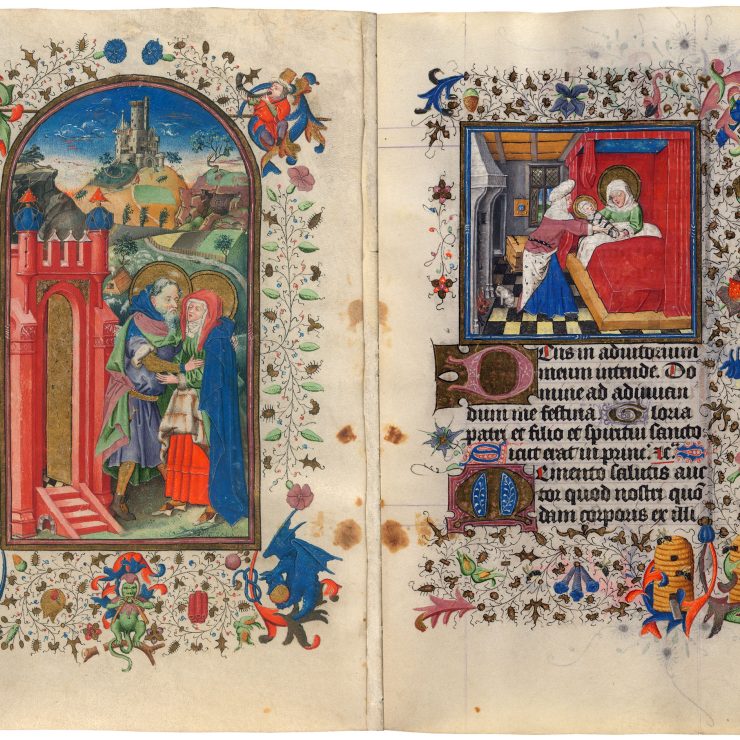 Deus in adiutorium
meum intende. Do
mine ad adiuuan
dum me festina. Gloria
patri et filio et spiritui sancto
Sicut erat in princ. ꝛc.
Memento salutis auc
tor quod nostri quō
dam corporis ex illi